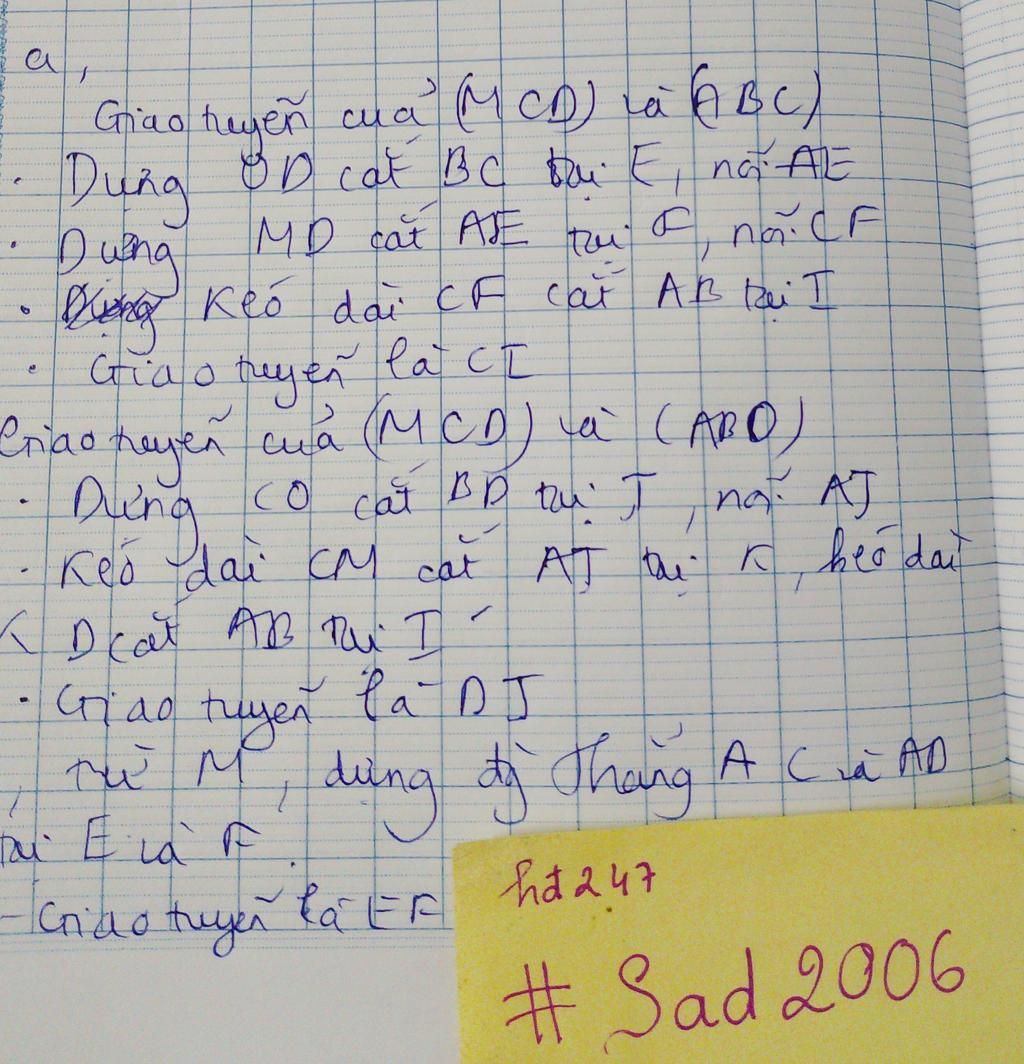 a,
Giao tuyến của (MCD) và (ABC)
. Dựng OD cắt BC tại E, nối AE
. Dựng MD cắt AE tại F, nối CF
. Kéo dài CF cắt AB tại I
. Giao tuyến là CI
Giao tuyến của (MCD) và (ABD)
. Dựng CO cắt BD tại J, nối AJ
. Kéo dài CM cắt AJ tại K, kéo dài
K D cắt AB tại I
. Giao tuyến là DJ
, từ M, dựng đg thẳng AC và AD
tại E và F.
- Giao tuyến là EF
hd247
# Sad2006